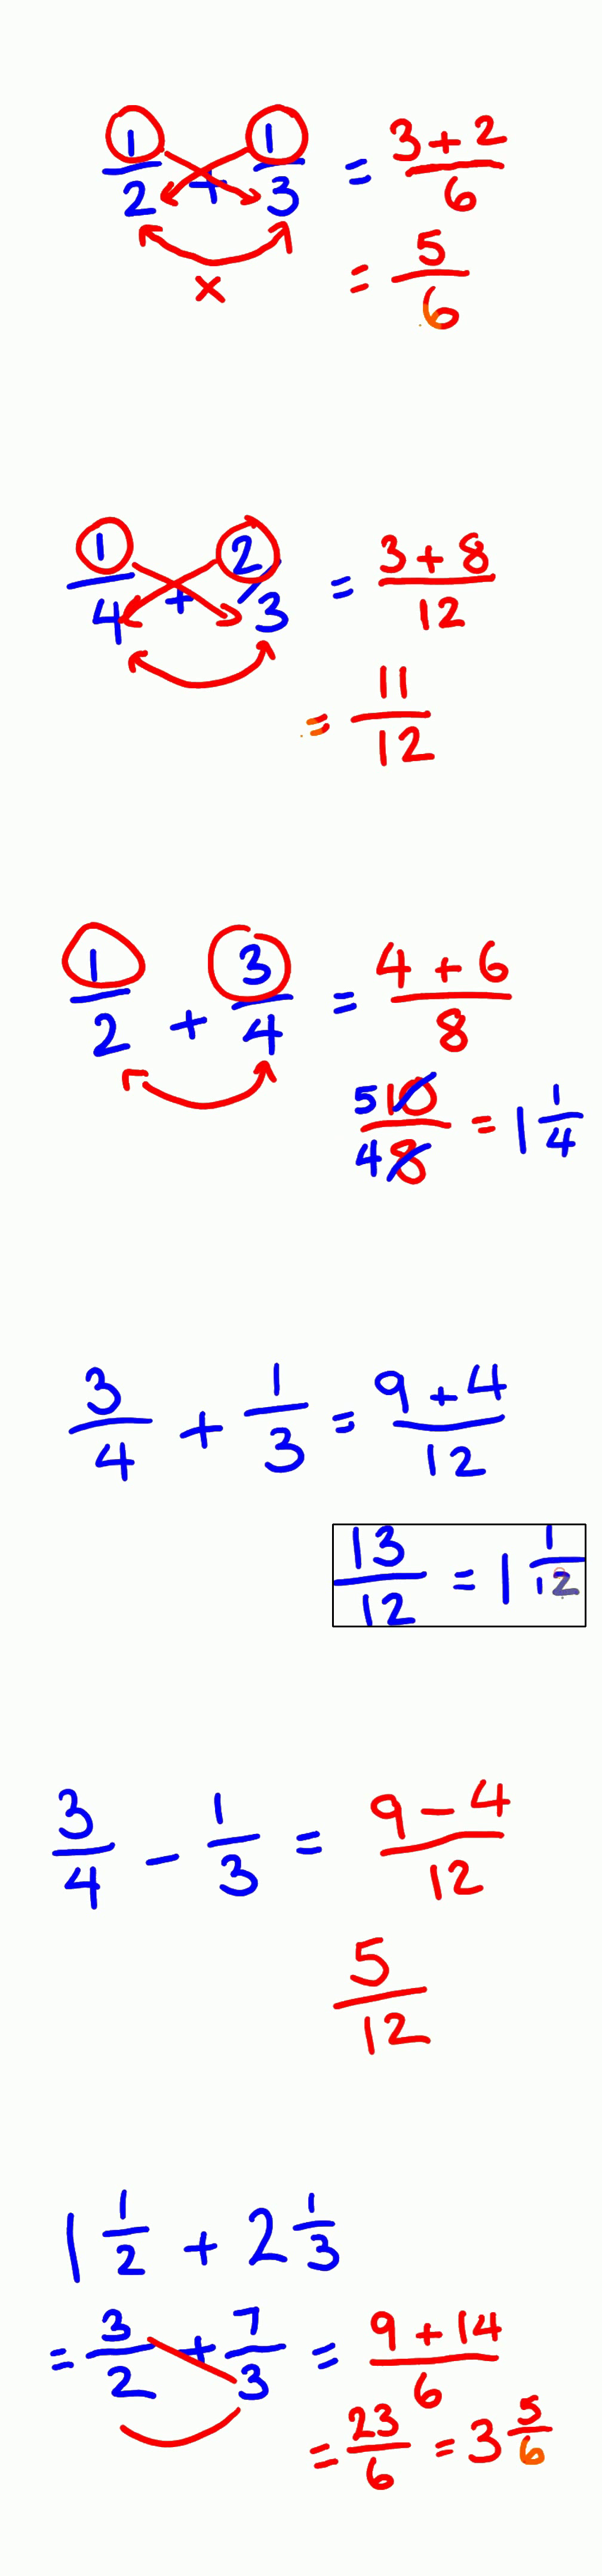 1/2 + 1/3 = (3 + 2)/6
×
= 5/6
1/4 + 2/3 = (3 + 8)/12
= 11/12
1/2 + 3/4 = (4 + 6)/8
5 10 / 4 8 = 1 1/4
3/4 + 1/3 = (9 + 4)/12
13/12 = 1 1/12
3/4 − 1/3 = (9 − 4)/12
5/12
1 1/2 + 2 1/3
= 3/2 + 7/3 = (9 + 14)/6
= 23/6 = 3 5/6